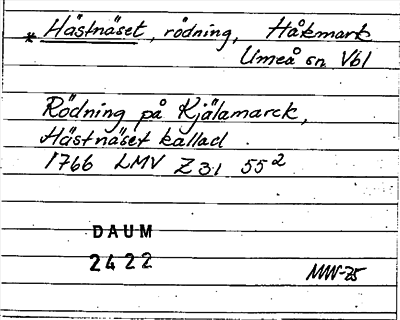 * Hästnäset, rödning, Håkmark
Umeå sn Vbl
Rödning på Kjälamarck,
Hästnäset kallad
1766 LMV Z31 55²
DAUM
2422
MW-75